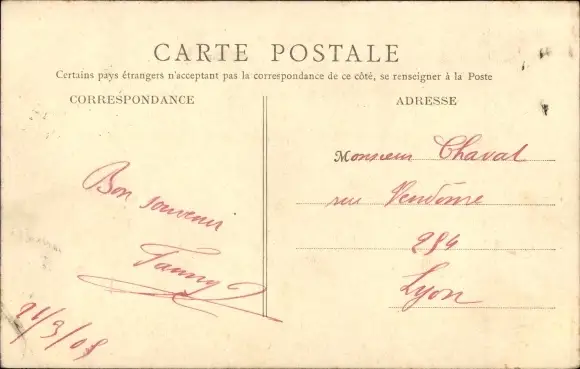 CARTE POSTALE
Certains pays étrangers n'acceptant pas la correspondance de ce côté, se renseigner à la Poste
CORRESPONDANCE
Bon souvenir
Fanny
21/3/05
ADRESSE
Monsieur Chavat
rue Vendôme
284
Lyon